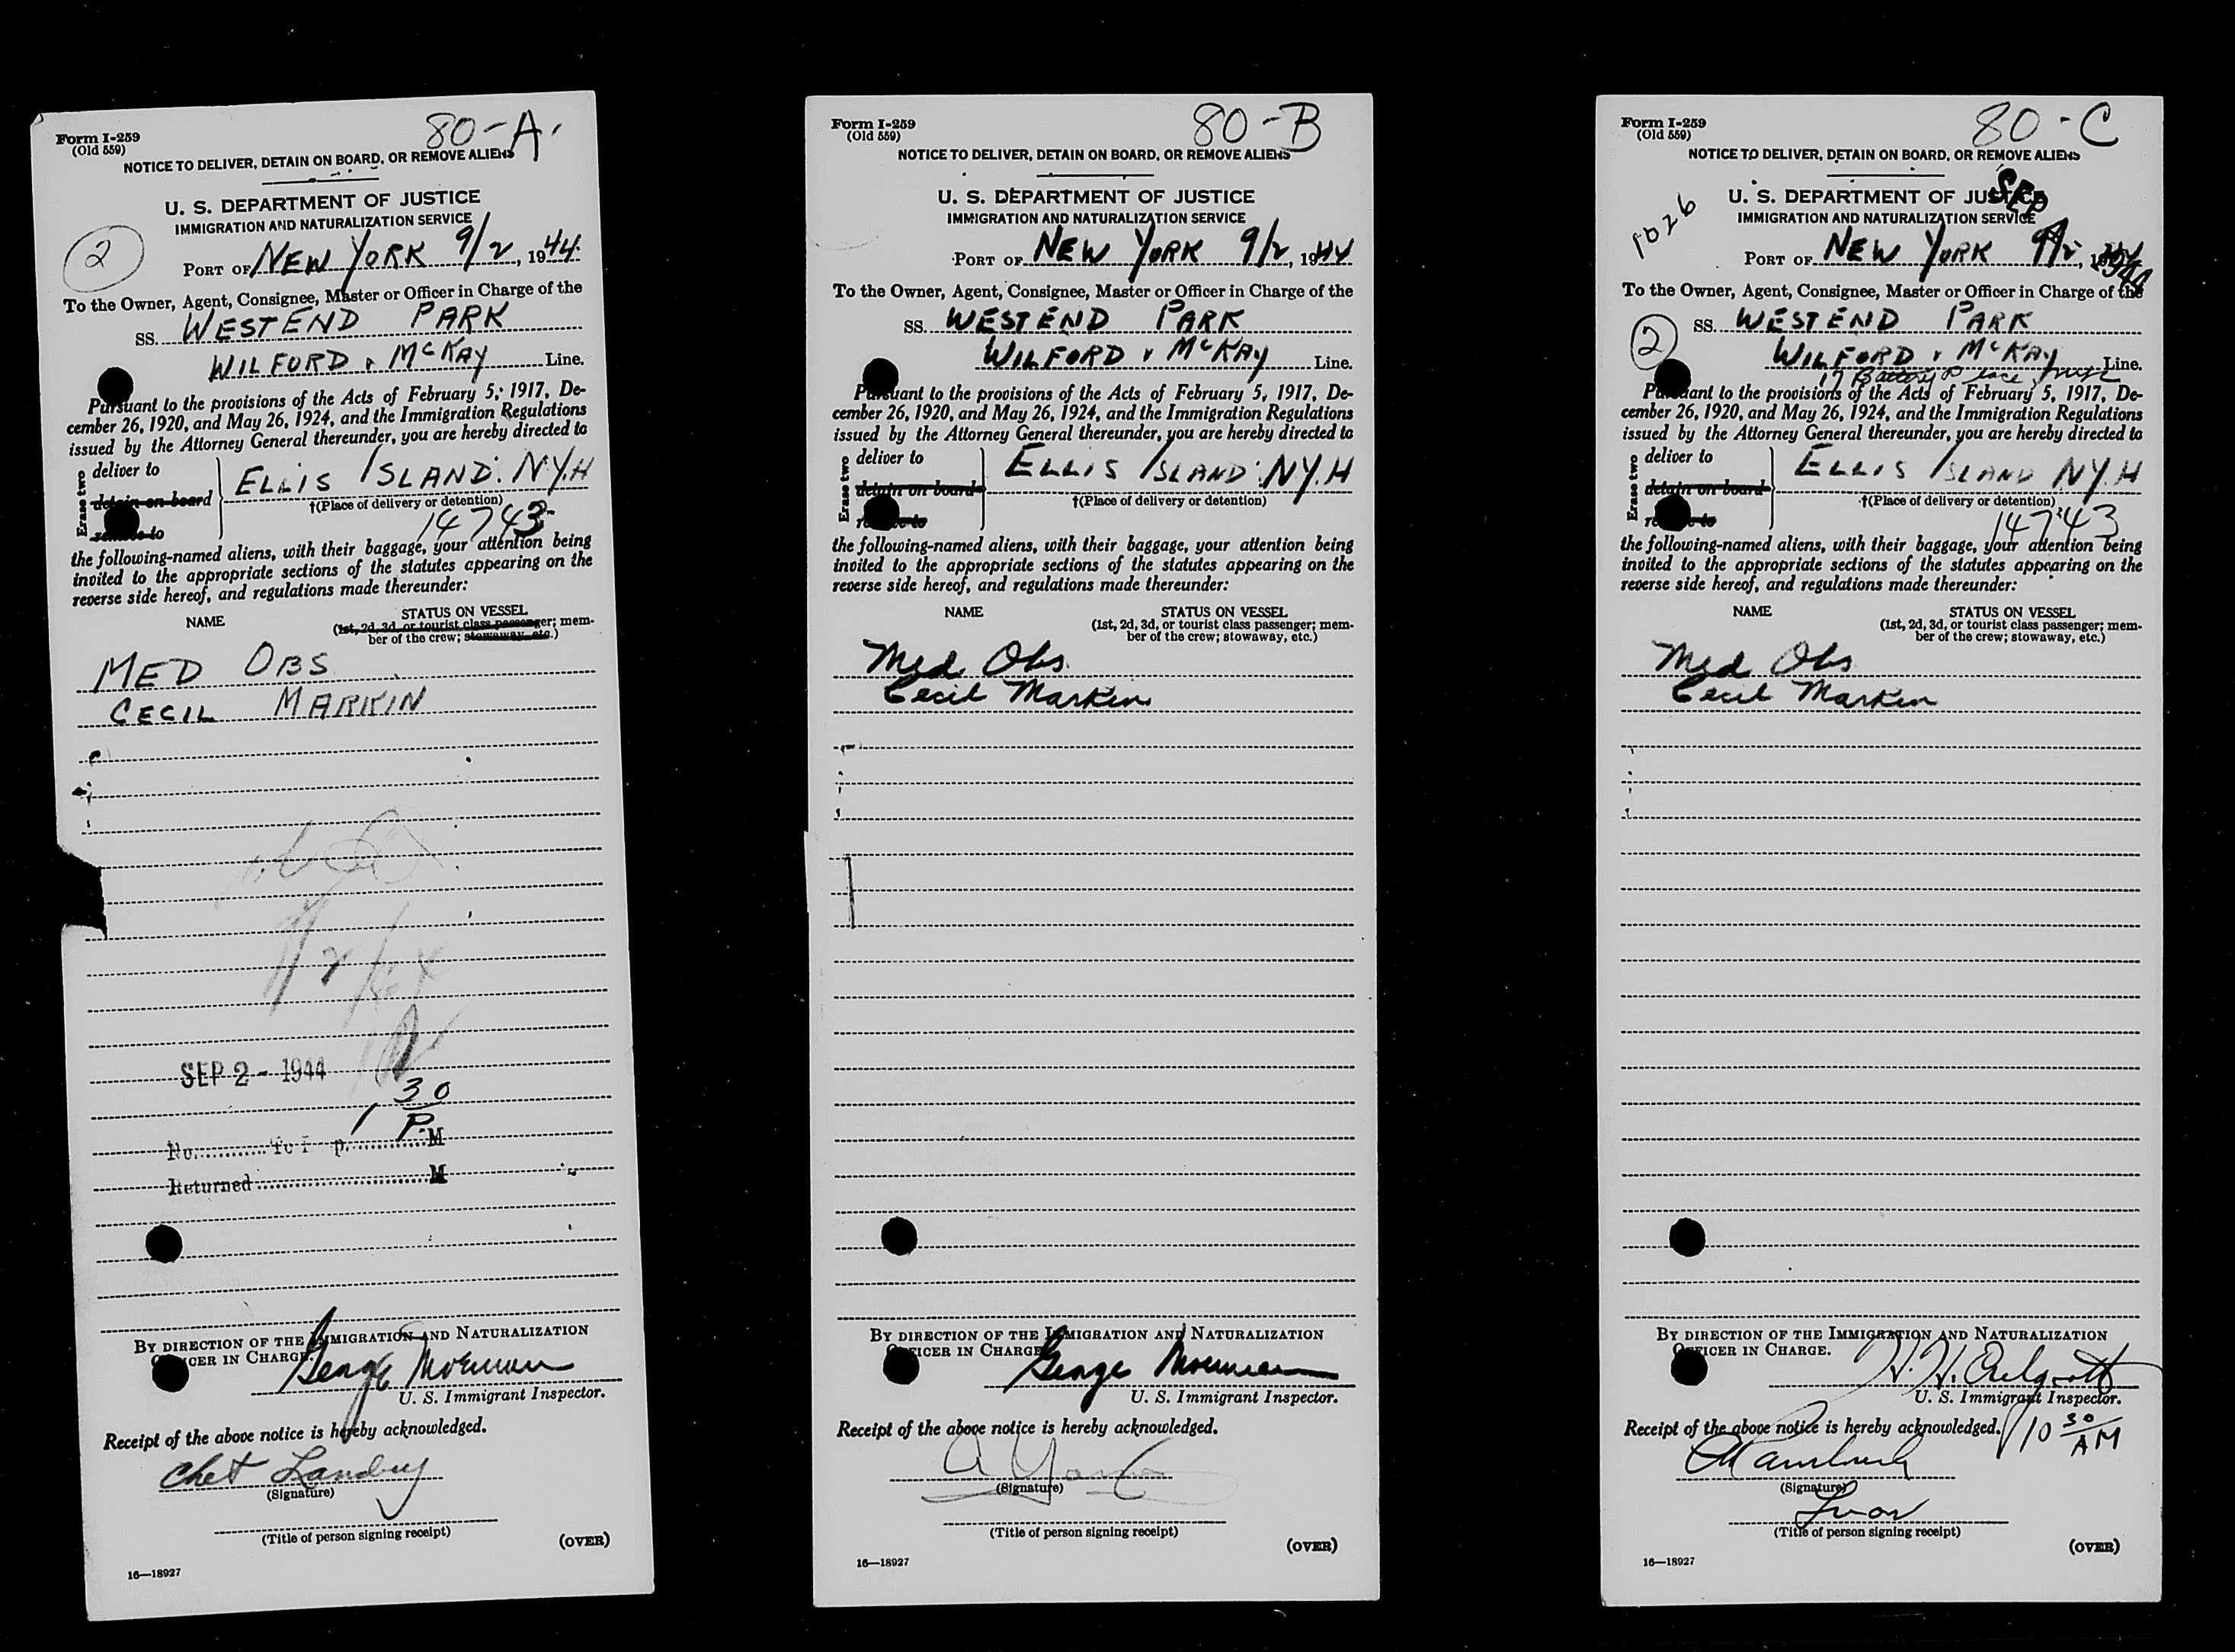 80-A.
Form I-259
(Old 559)
NOTICE TO DELIVER, DETAIN ON BOARD, OR REMOVE ALIENS
U. S. DEPARTMENT OF JUSTICE
IMMIGRATION AND NATURALIZATION SERVICE
2
PORT OF NEW YORK 9/2, 1944.
To the Owner, Agent, Consignee, Master or Officer in Charge of the
SS. WESTEND PARK
WILFORD & McKAY Line.
Pursuant to the provisions of the Acts of February 5, 1917, De-
cember 26, 1920, and May 26, 1924, and the Immigration Regulations
issued by the Attorney General thereunder, you are hereby directed to
Erase two
deliver to
detain on board
remove to
ELLIS ISLAND. NY.H
†(Place of delivery or detention)
14743
the following-named aliens, with their baggage, your attention being
invited to the appropriate sections of the statutes appearing on the
reverse side hereof, and regulations made thereunder:
NAME
STATUS ON VESSEL
(1st, 2d, 3d, or tourist class passenger; mem-
ber of the crew; stowaway, etc.)
MED OBS
CECIL MARKIN
SEP 2 - 1944
1 30
P.M
No.
Returned M
BY DIRECTION OF THE IMMIGRATION AND NATURALIZATION
OFFICER IN CHARGE.
George
U. S. Immigrant Inspector.
Receipt of the above notice is hereby acknowledged.
Chet Landry
(Signature)
(Title of person signing receipt)
(OVER)
16—18927
80-B
Form I-259
(Old 559)
NOTICE TO DELIVER, DETAIN ON BOARD, OR REMOVE ALIENS
U. S. DEPARTMENT OF JUSTICE
IMMIGRATION AND NATURALIZATION SERVICE
PORT OF NEW YORK 9/2, 1944
To the Owner, Agent, Consignee, Master or Officer in Charge of the
SS. WESTEND PARK
WILFORD & McKAY Line.
Pursuant to the provisions of the Acts of February 5, 1917, De-
cember 26, 1920, and May 26, 1924, and the Immigration Regulations
issued by the Attorney General thereunder, you are hereby directed to
Erase two
deliver to
detain on board
remove to
ELLIS ISLAND. NY.H
†(Place of delivery or detention)
the following-named aliens, with their baggage, your attention being
invited to the appropriate sections of the statutes appearing on the
reverse side hereof, and regulations made thereunder:
NAME
STATUS ON VESSEL
(1st, 2d, 3d, or tourist class passenger; mem-
ber of the crew; stowaway, etc.)
Med Obs.
Cecil Markin
BY DIRECTION OF THE IMMIGRATION AND NATURALIZATION
OFFICER IN CHARGE.
George
U. S. Immigrant Inspector.
Receipt of the above notice is hereby acknowledged.
(Signature)
(Title of person signing receipt)
(OVER)
16—18927
80-C
Form I-259
(Old 559)
NOTICE TO DELIVER, DETAIN ON BOARD, OR REMOVE ALIENS
U. S. DEPARTMENT OF JUSTICE
SEP
IMMIGRATION AND NATURALIZATION SERVICE
1026
PORT OF NEW YORK 9/2, 1944
To the Owner, Agent, Consignee, Master or Officer in Charge of the
2
SS. WESTEND PARK
WILFORD & McKAY Line.
17 Battery Place, NYC
Pursuant to the provisions of the Acts of February 5, 1917, De-
cember 26, 1920, and May 26, 1924, and the Immigration Regulations
issued by the Attorney General thereunder, you are hereby directed to
Erase two
deliver to
detain on board
remove to
ELLIS ISLAND NY.H
†(Place of delivery or detention)
14743
the following-named aliens, with their baggage, your attention being
invited to the appropriate sections of the statutes appearing on the
reverse side hereof, and regulations made thereunder:
NAME
STATUS ON VESSEL
(1st, 2d, 3d, or tourist class passenger; mem-
ber of the crew; stowaway, etc.)
Med Obs
Cecil Markin
BY DIRECTION OF THE IMMIGRATION AND NATURALIZATION
OFFICER IN CHARGE.
U. S. Immigrant Inspector.
Receipt of the above notice is hereby acknowledged.
10 30
AM
(Signature)
(Title of person signing receipt)
(OVER)
16—18927